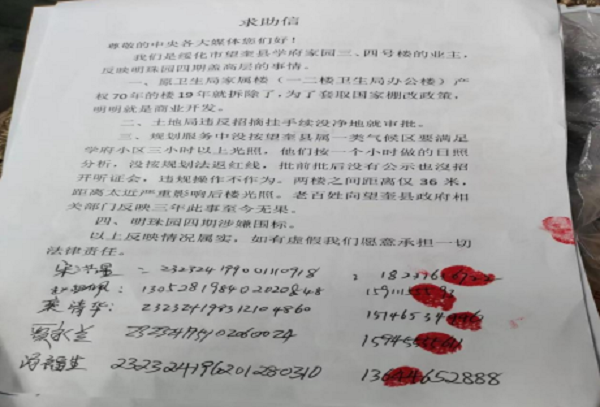 求助信
尊敬的中央各大媒体您们好！
我们是绥化市望奎县学府家园三、四号楼的业主，
反映明珠园四期盖高层的事情。
一、原卫生局家属楼（一二楼卫生局办公楼）产
权70年的楼19年就拆除了，为了套取国家棚改政策，
明明就是商业开发。
二、土地局违反招摘挂手续没净地就审批。
三、规划服务中没按望奎县属一类气候区要满足
学府小区三小时以上光照，他们按一个小时做的日照
分析，没按规划法退红线，批前批后没有公示也没招
开听证会，违规操作不作为。两楼之间距离仅36米，
距离太近严重影响后楼光照。老百姓向望奎县政府相
关部门反映三年此事至今无果。
四、明珠园四期涉嫌围标。
以上反映情况属实，如有虚假我们愿意承担一切
法律责任。